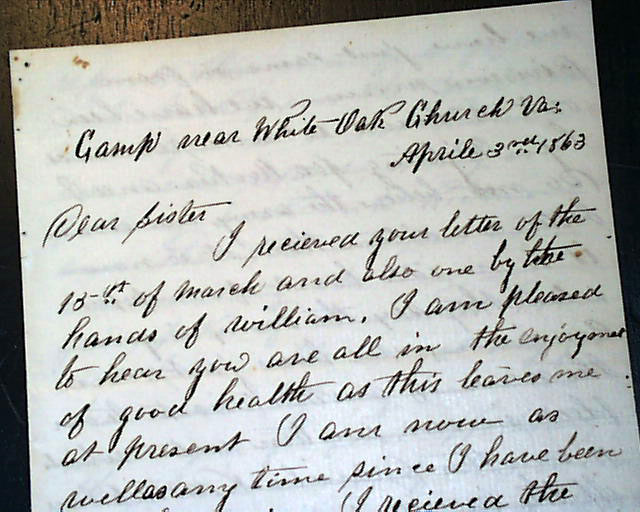 Camp near White Oak Church Va:
Aprile 3rd 1863
Dear Sister
I recieved your letter of the
of March and also one by the
hands of william. I am pleased
to hear you are all in the enjoyment
of good health as this leaves me
at present I am now as
well as any time since I have been
I recieved the